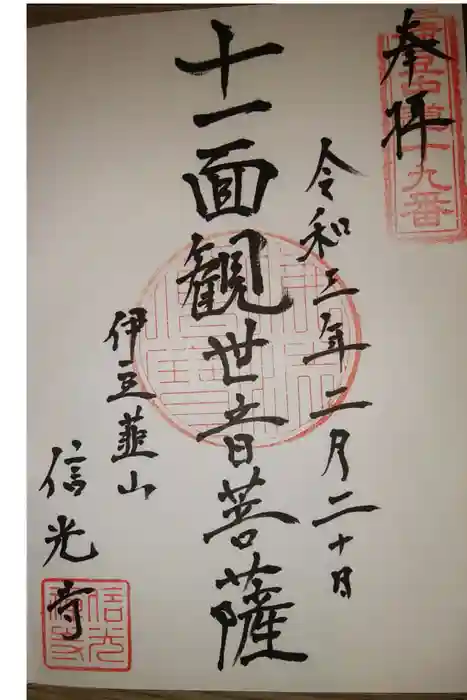 奉拝
令和三年二月二十日
十一面観世音菩薩
伊豆韮山
信光寺